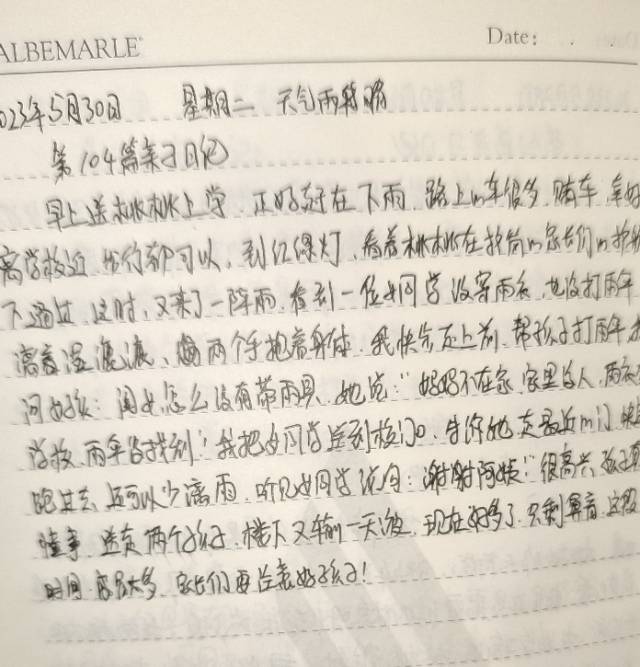 ALBEMARLE
Date:
023年5月30日 星期二 天气雨转晴
第104篇亲子日记
早上送桃桃上学,正好赶在下雨,路上车很多,堵车,幸好
离学校近,步行都可以,到红绿灯,看着桃桃在执勤的家长们的护
下通过,这时,又来了一阵雨,看到一位女同学没穿雨衣,也没打雨伞
满意湿漉漉,两个手抱着身体,我快步赶上前,帮孩子打雨伞
问女孩:闺女怎么没有带雨具,她说:"妈妈不在家,家里没人,雨衣
学校,雨伞没找到!"我把女同学送到校门口,告诉她走最近的门,快
跑过去,还可以少淋雨,听见女同学说句:谢谢阿姨!"很高兴,孩子
懂事,送完两个孩子,楼下又输一天液,现在好多了,只剩鼻音,这段
时间,感冒太多,家长们要注意好孩子!